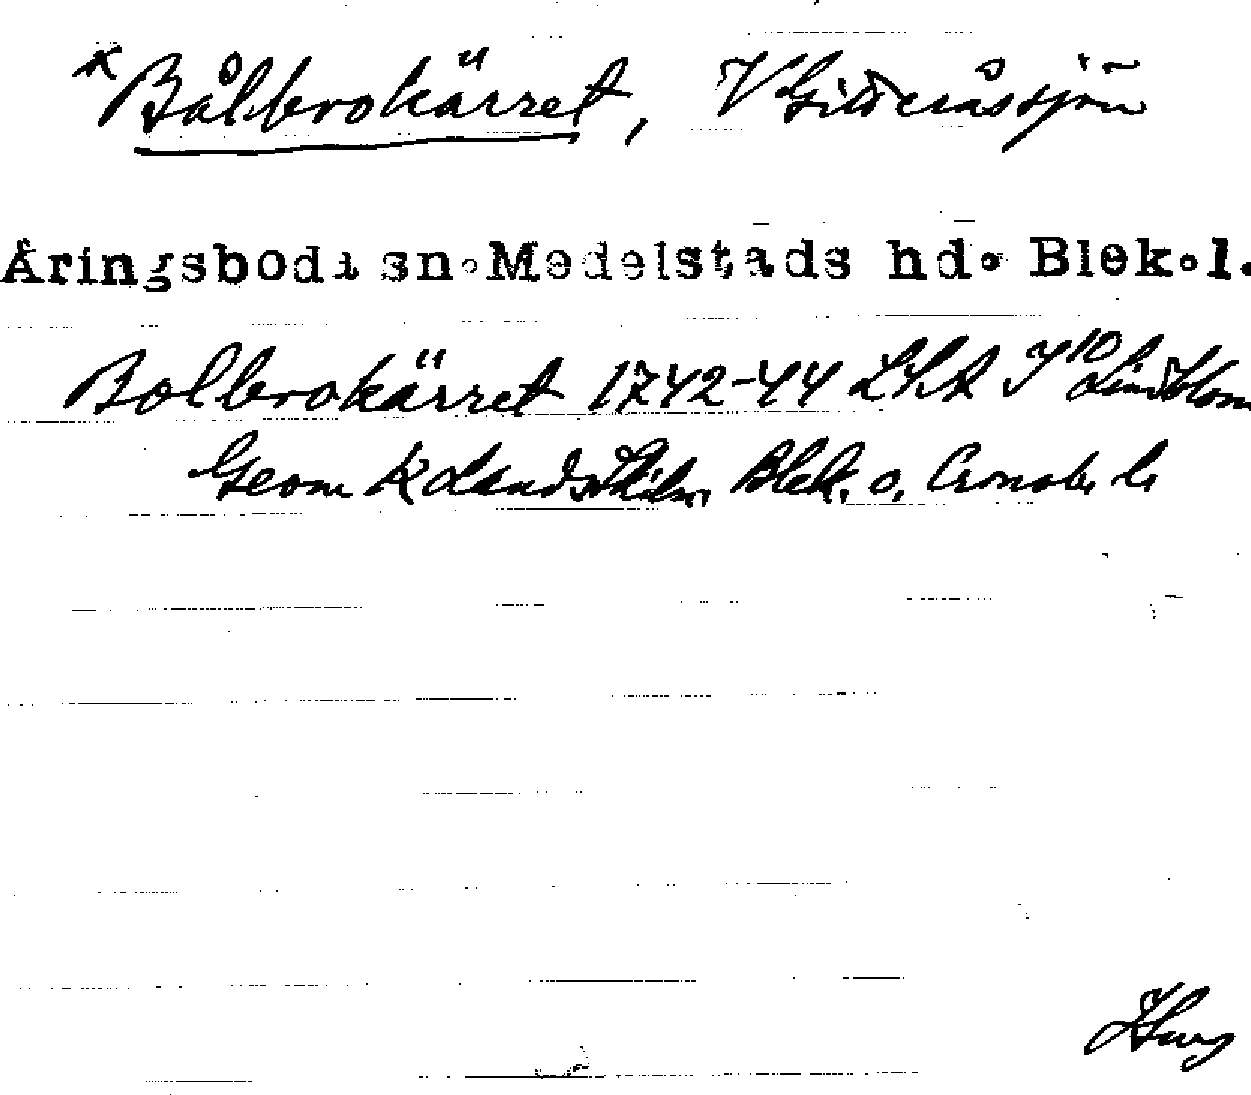 * Bålbrokärret, V Gilleråssjön
Åringsboda sn. Medelstads hd. Blek. l.
Bolbrokärret 1742-44 LSA I 10 Lindblom
Geom K Landskilr, Blek. o. Cronob. l.